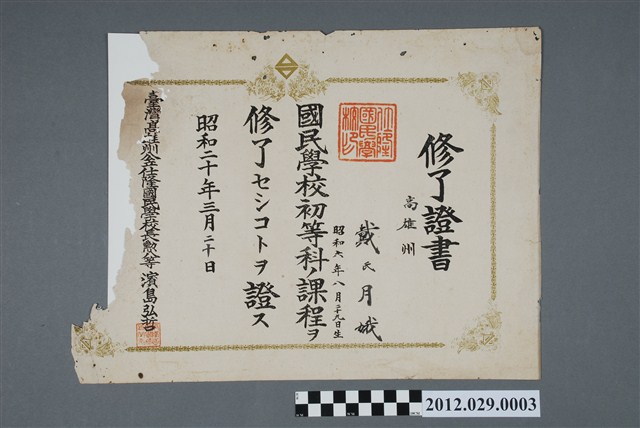 修了證書
高雄州
戴氏月娥
昭和六年八月二十九日生
國民學校初等科ノ課程ヲ
修了セシコトヲ證ス
昭和二十年三月二十日
臺灣公立仕隆國民學校長勲八等 濱島弘哲
2012.029.0003